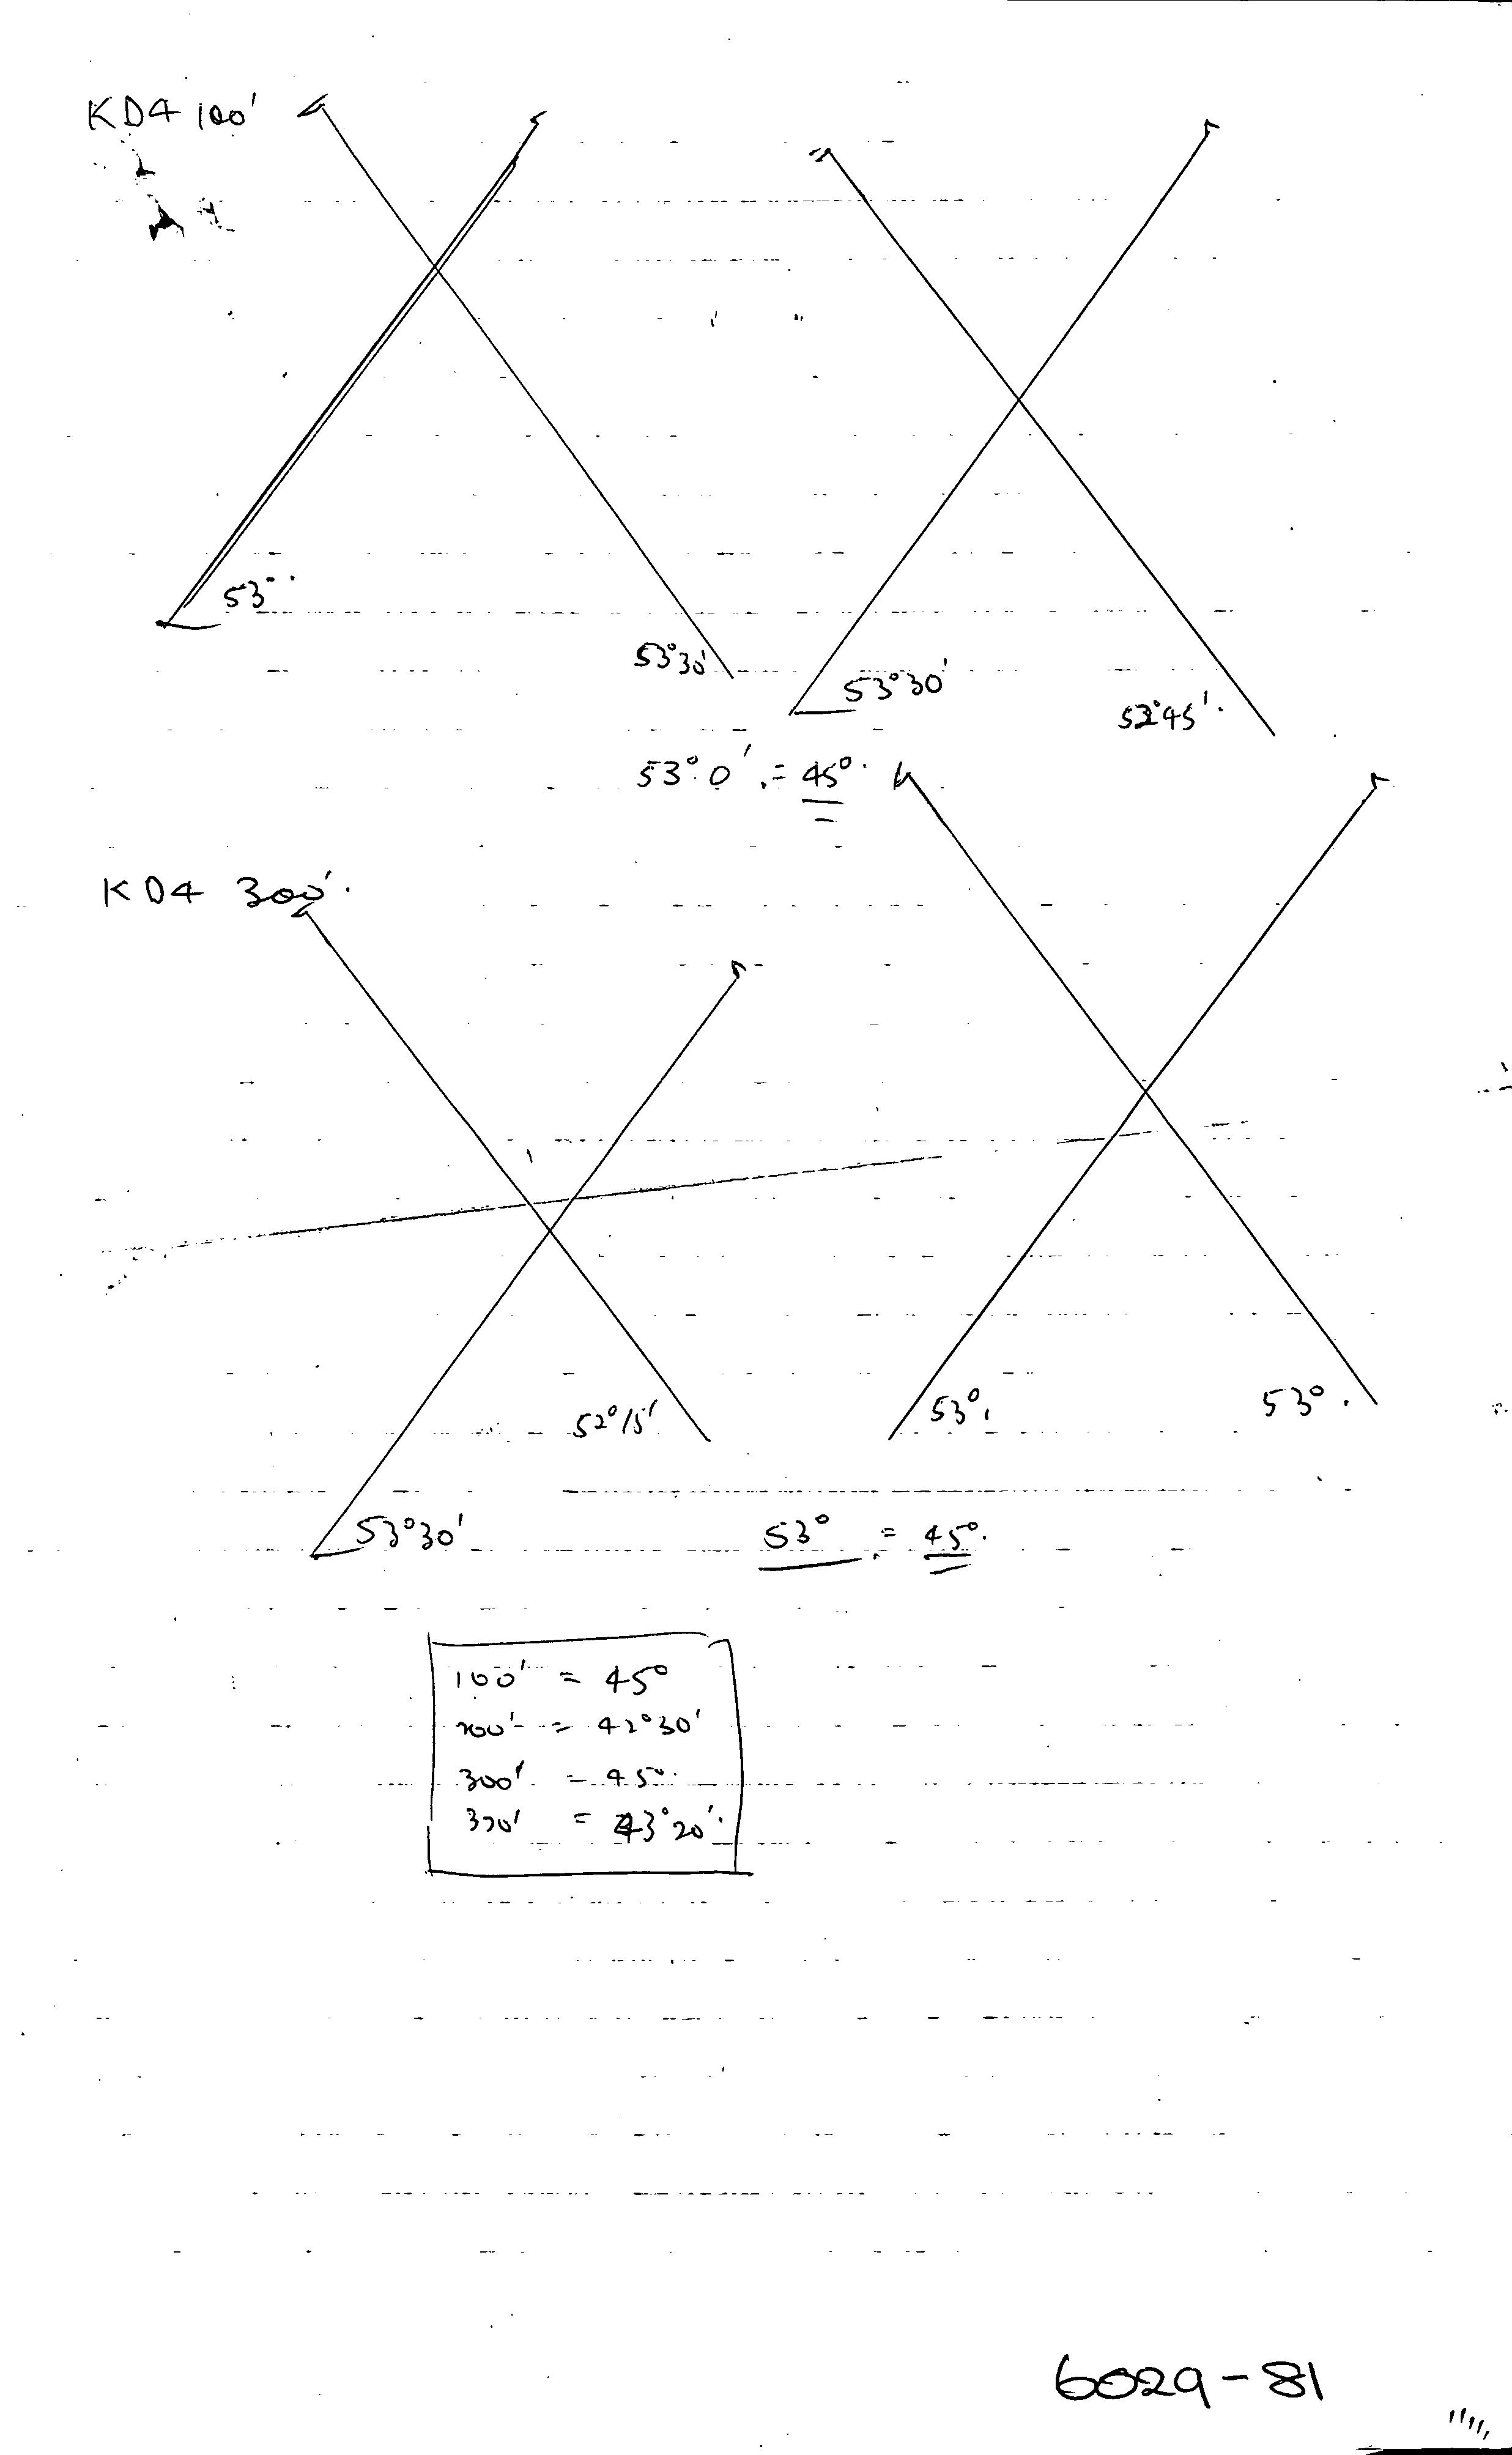 KD4 100'
53°
53°30'
53°30'
52°45'.
53°0' = 45°.
KD4 300'.
52°15'
53°.
53°.
53°30'
53° = 45°.
100' = 45°
200' = 42°30'
300' = 45°.
370' = 43°20'.
6029-81